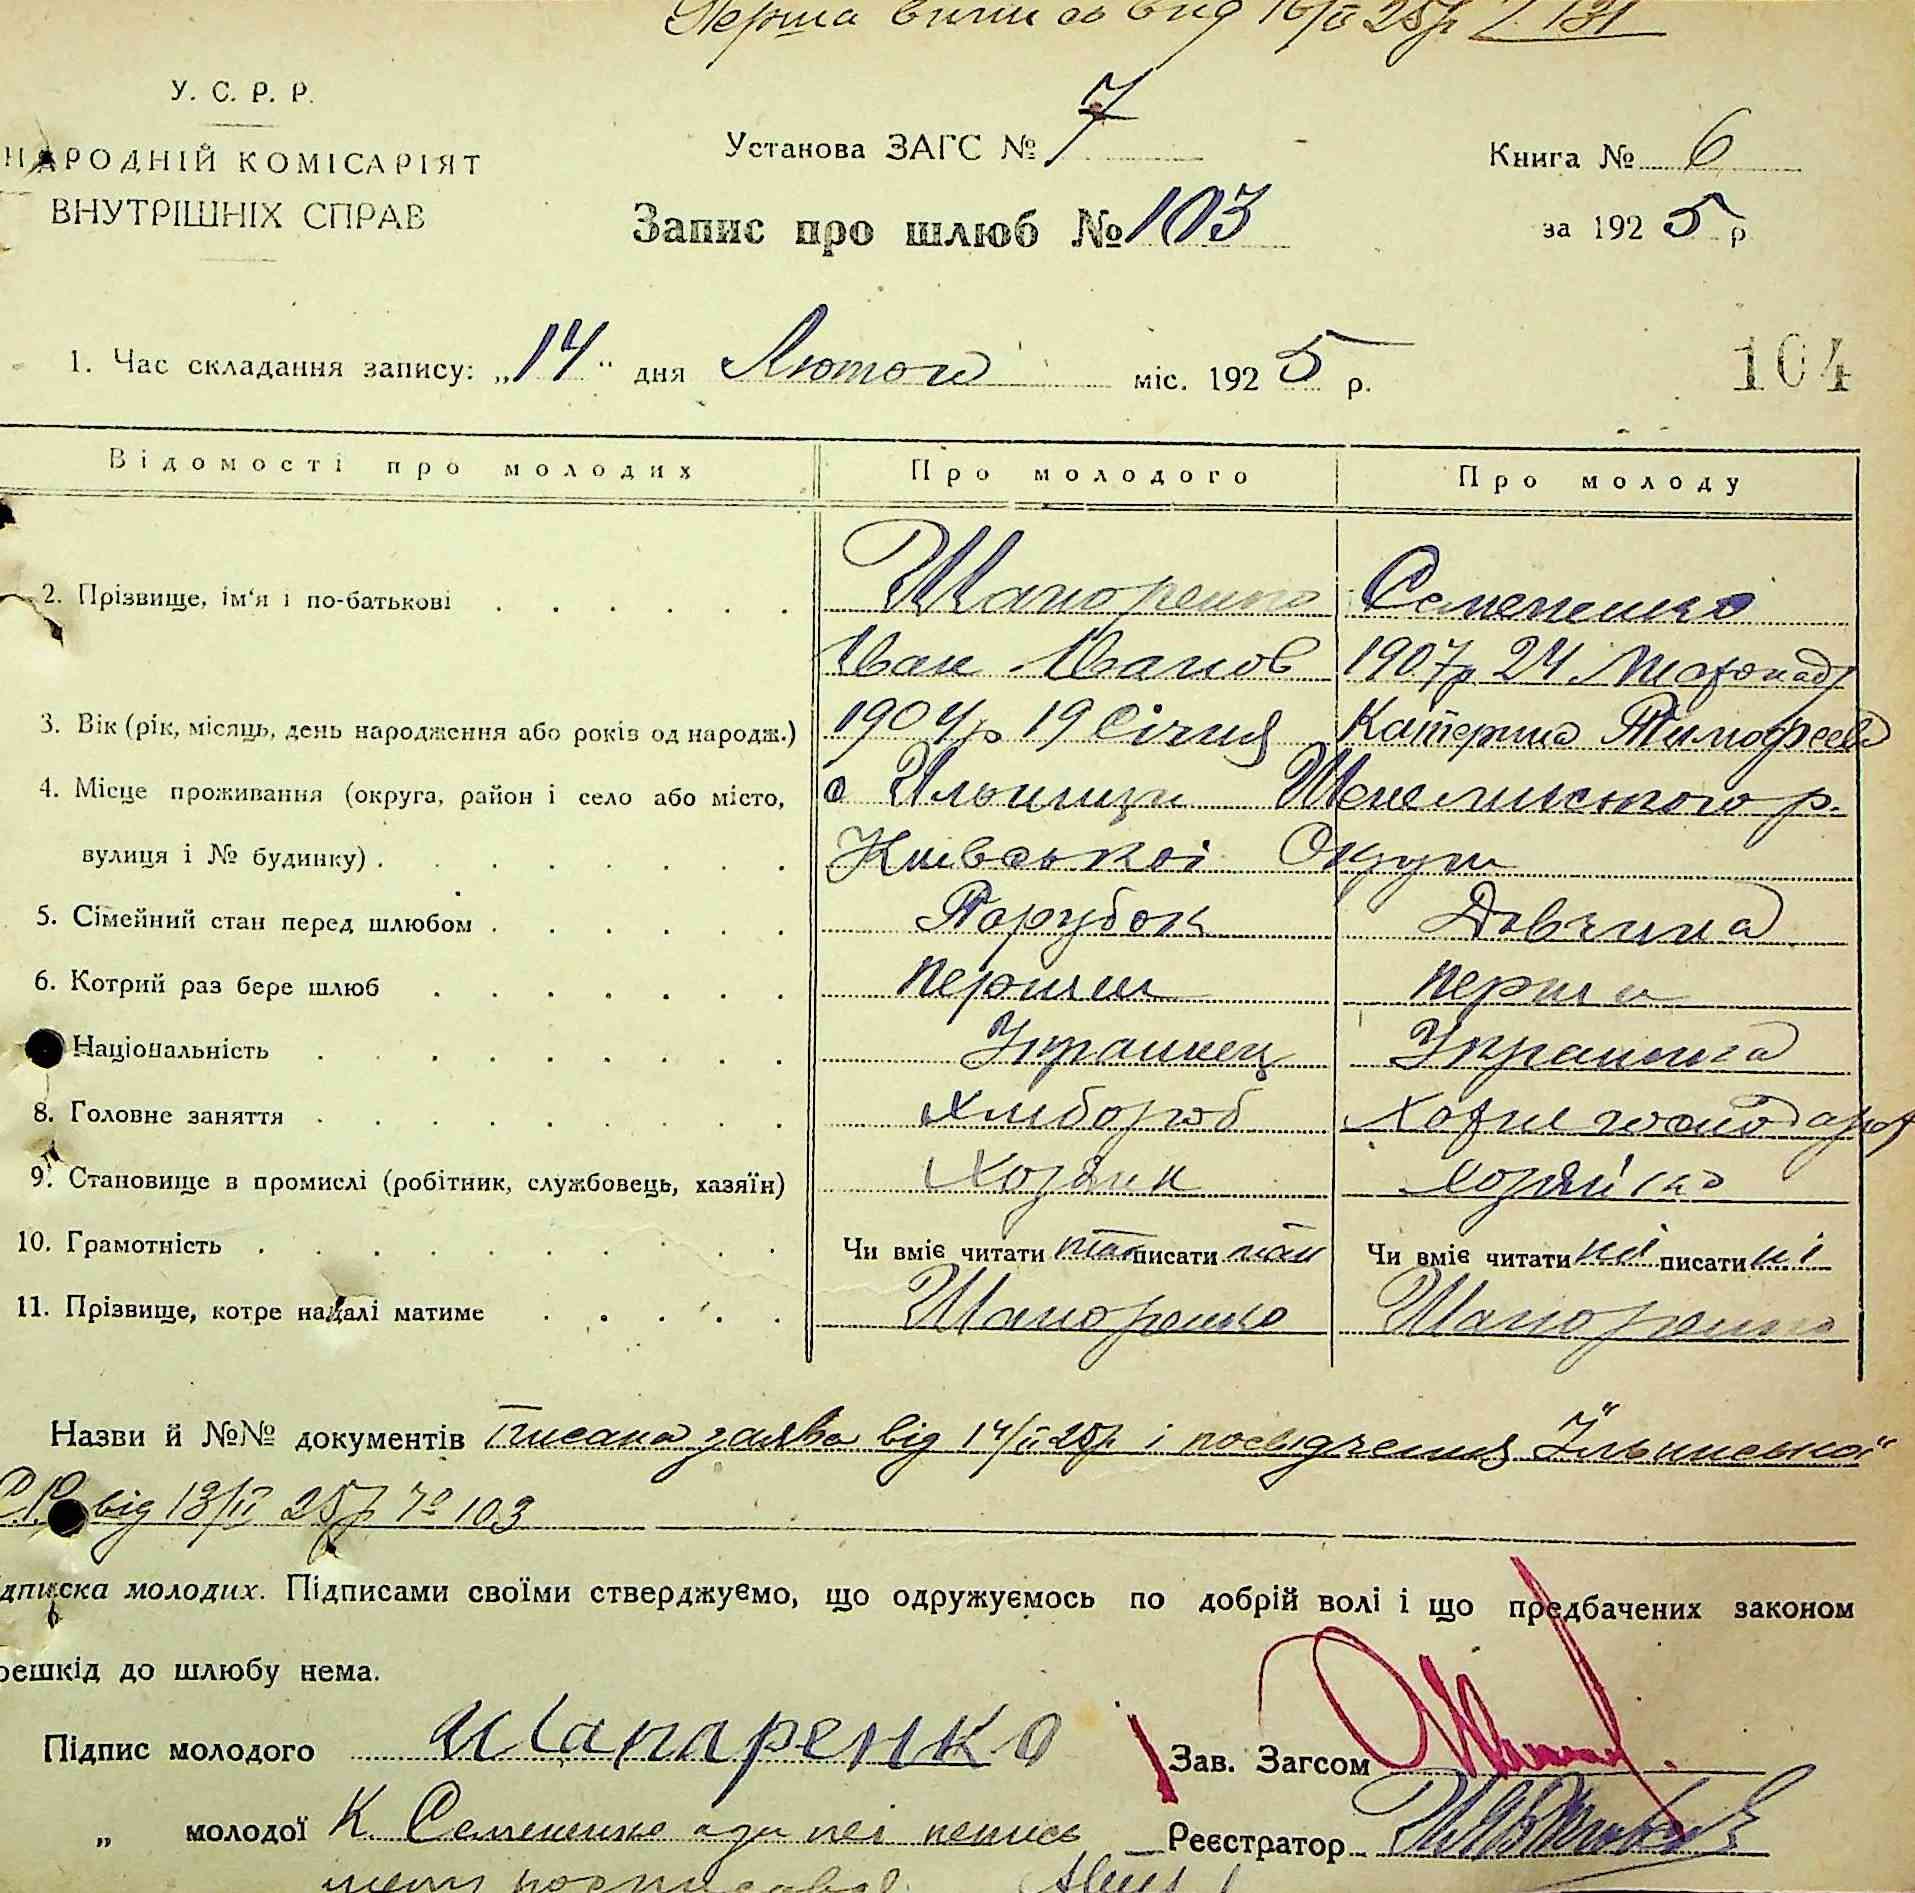 Перша випись вид 16/II 25р № 131
У. С. Р. Р.
НАРОДНІЙ КОМІСАРІЯТ
ВНУТРІШНІХ СПРАВ
Установа ЗАГС № 7
Книга № 6
Запис про шлюб № 103
за 1925 р.
1. Час складання запису: „14“ дня Лютого міс. 1925 р.
104
Відомості про молодих Про молодого Про молоду
2. Прізвище, ім'я і по-батькові Шапоренко Семененко
Іван Іванов 1907р 24 Листопаду
3. Вік (рік, місяць, день народження або років од народж.) 1904р 19 Січня Катерина Тимофеева
4. Місце проживання (округа, район і село або місто, с Ильинци Шепелицького р.
вулиця і № будинку) Київської Округи
5. Сімейний стан перед шлюбом Парубок Дівчина
6. Котрий раз бере шлюб перший перша
Національність Українец Українка
8. Головне заняття Хлибороб Хотне господарст
9. Становище в промислі (робітник, службовець, хазяїн) Хозяин Хозяйка
10. Грамотність Чи вміє читати так писати так Чи вміє читати ні писати ні
11. Прізвище, котре надалі матиме Шапоренко Шапоренко
Назви й №№ документів Писана заява від 14/II 25р і посвідчення „Ільинської“
С.Р. від 13/II 25р № 103
дписка молодих. Підписами своїми стверджуємо, що одружуємось по добрій волі і що предбачених законом
решкід до шлюбу нема.
Підпис молодого Шапаренко Зав. Загсом
„ молодої К. Семененко а за неі непись
Реєстратор
менну росписався